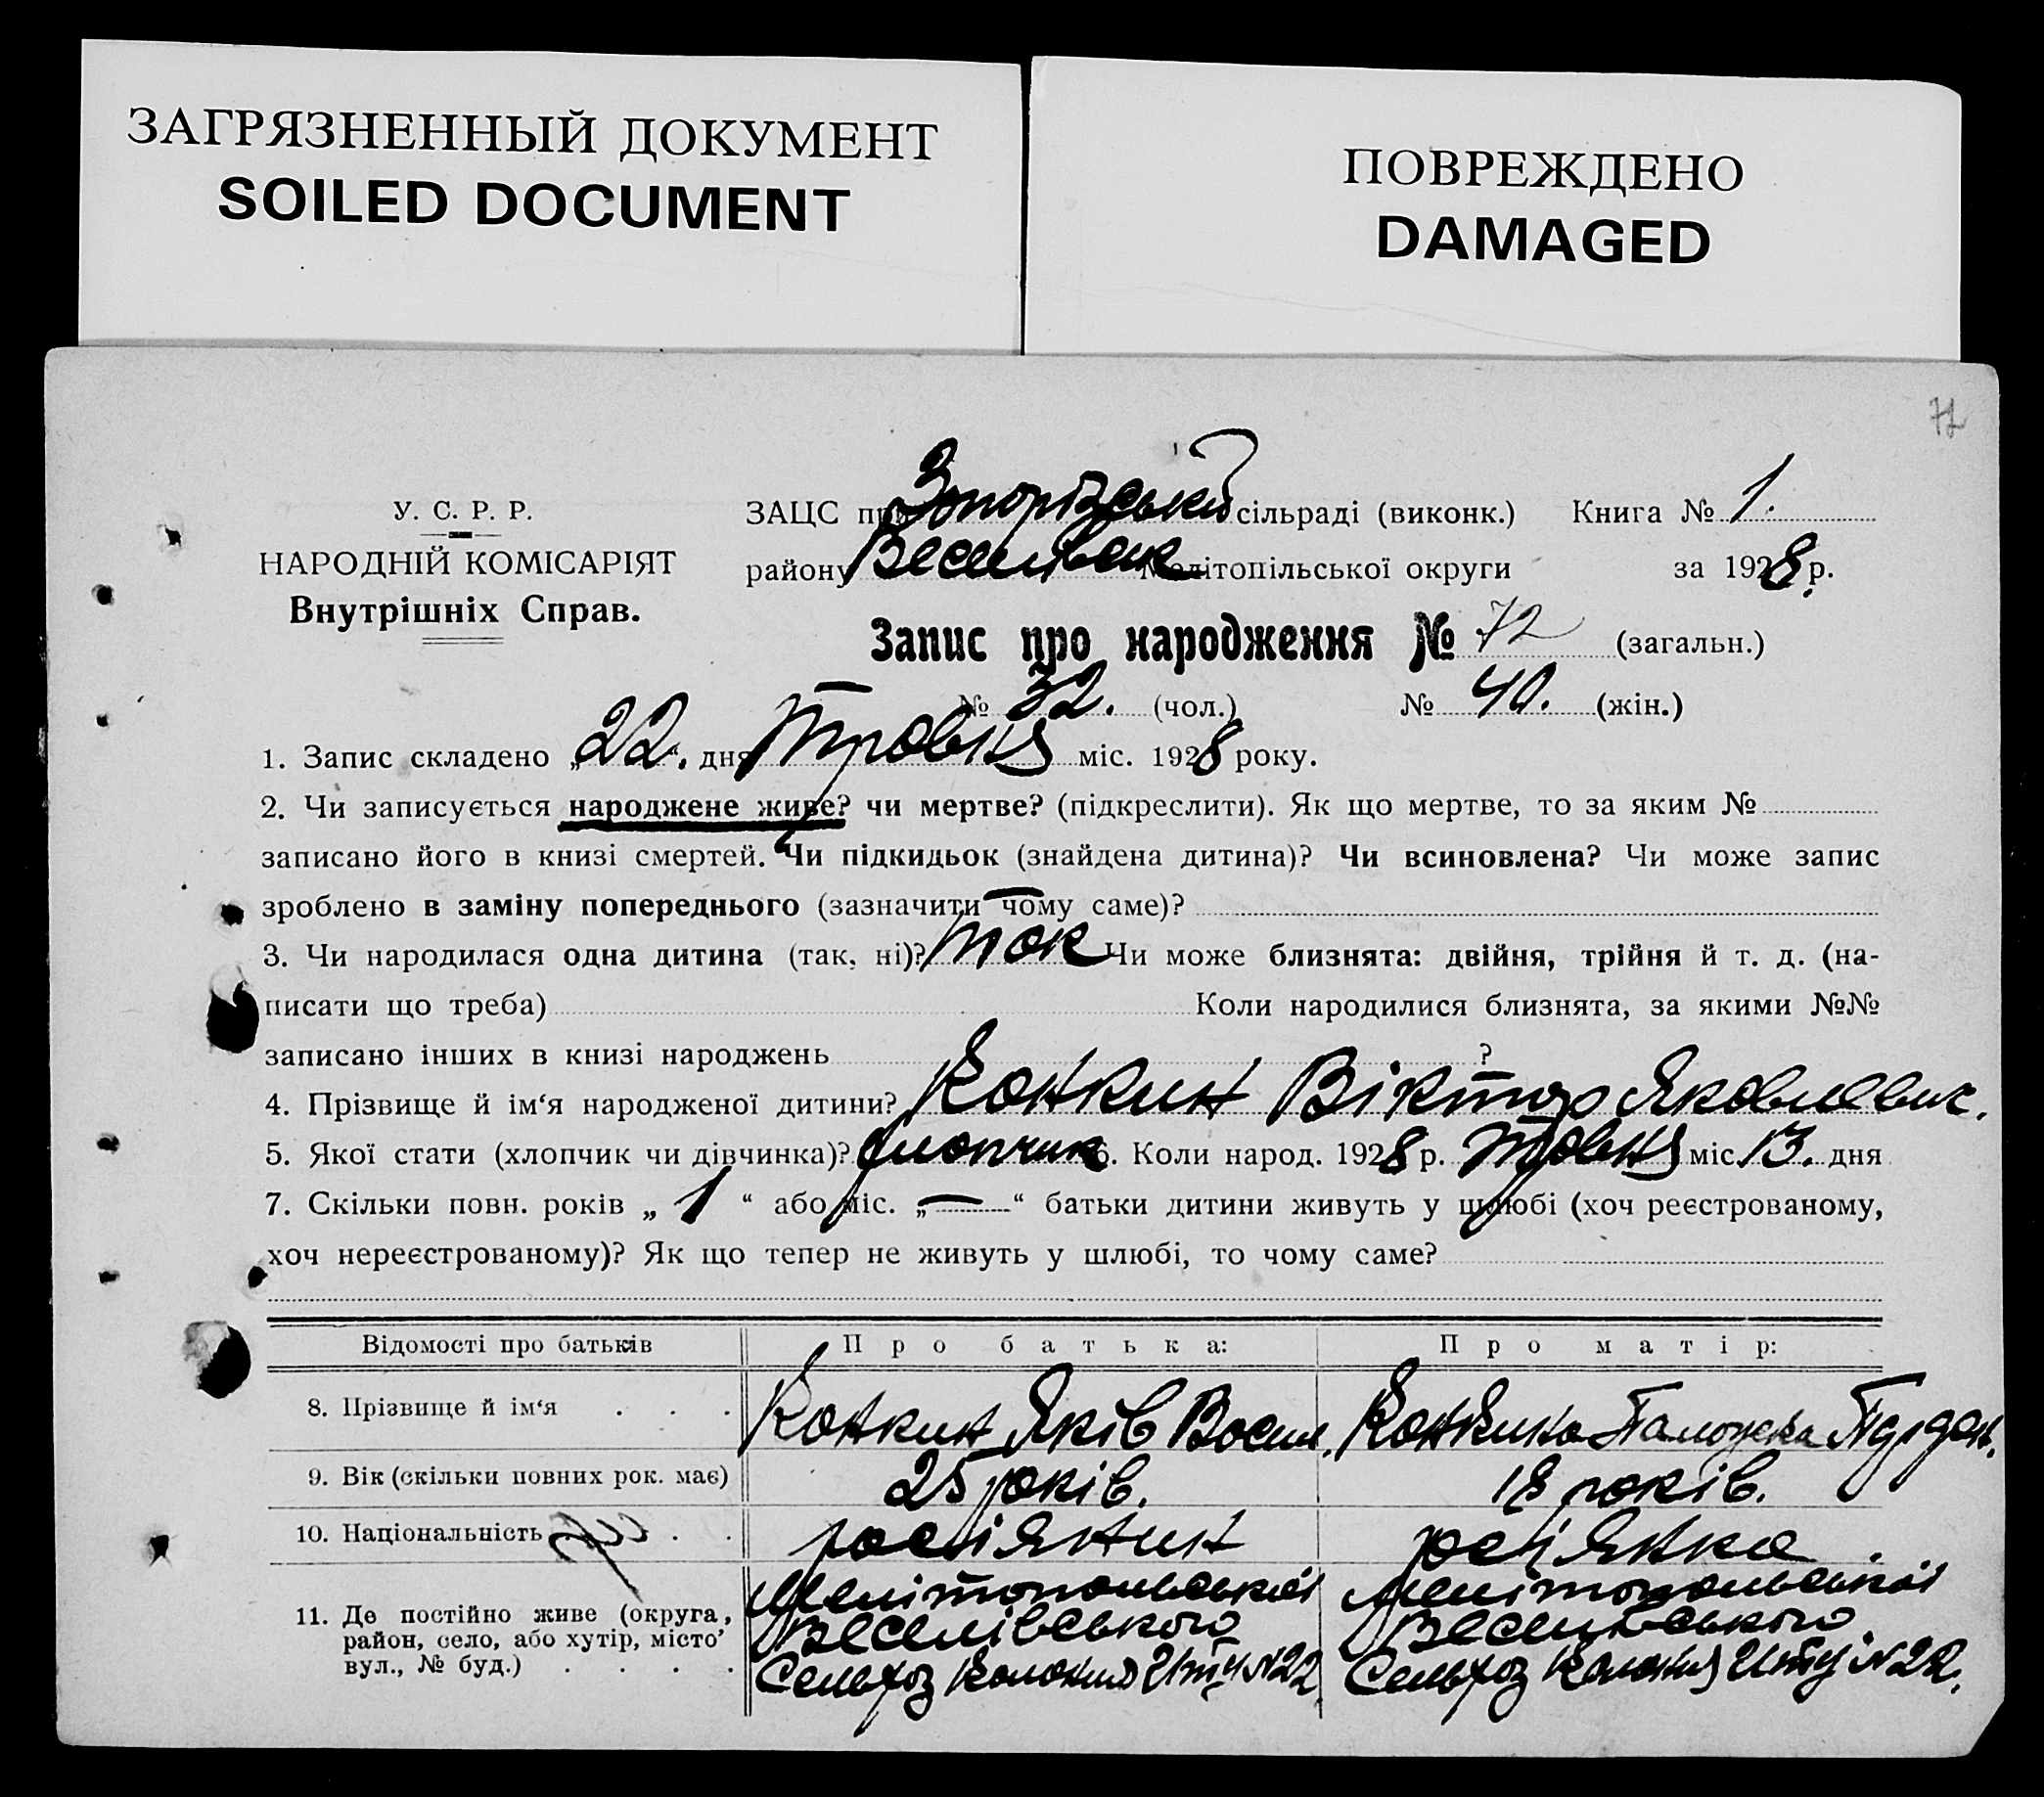 ЗАГРЯЗНЕННЫЙ ДОКУМЕНТ
SOILED DOCUMENT
ПОВРЕЖДЕНО
DAMAGED
У. С. Р. Р.
НАРОДНІЙ КОМІСАРІЯТ
Внутрішніх Справ.
ЗАЦС при Запорізській сільраді (виконк.) Книга № 1.
району Веселівськ Мелітопільської округи за 1928 р.
Запис про народження № 72 (загальн.)
№ 32. (чол.) № 40. (жін.)
1. Запис складено „22.“ дня Травня міс. 1928 року.
2. Чи записується народжене живе? чи мертве? (підкреслити). Як що мертве, то за яким №
записано його в книзі смертей. Чи підкидьок (знайдена дитина)? Чи всиновлена? Чи може запис
зроблено в заміну попереднього (зазначити чому саме)?
3. Чи народилася одна дитина (так, ні)? так Чи може близнята: двійня, трійня й т. д. (на-
писати що треба) Коли народилися близнята, за якими №№
записано інших в книзі народжень ?
4. Прізвище й ім‘я народженої дитини? Конкин Віктор Яковлевич.
5. Якої стати (хлопчик чи дівчинка)? хлопчик 6. Коли народ. 1928 р. травня міс. 13. дня
7. Скільки повн. років „ 1 “ або міс. „ — “ батьки дитини живуть у шлюбі (хоч реєстрованому,
хоч нереєстрованому)? Як що тепер не живуть у шлюбі, то чому саме?
Відомості про батьків Про батька: Про матір:
8. Прізвище й ім‘я . . . Конкин Яків Васил. Конкина
9. Вік (скільки повних рок. має) 25 років. 18 років.
10. Національність . . росіянин росіянка.
11. Де постійно живе (округа, Мелітопольської Мелітопольської
район, село, або хутір, місто’ Веселівського Веселівського
вул., № буд.) . . . . Сельхоз Колония №22 Сельхоз Колония №22.